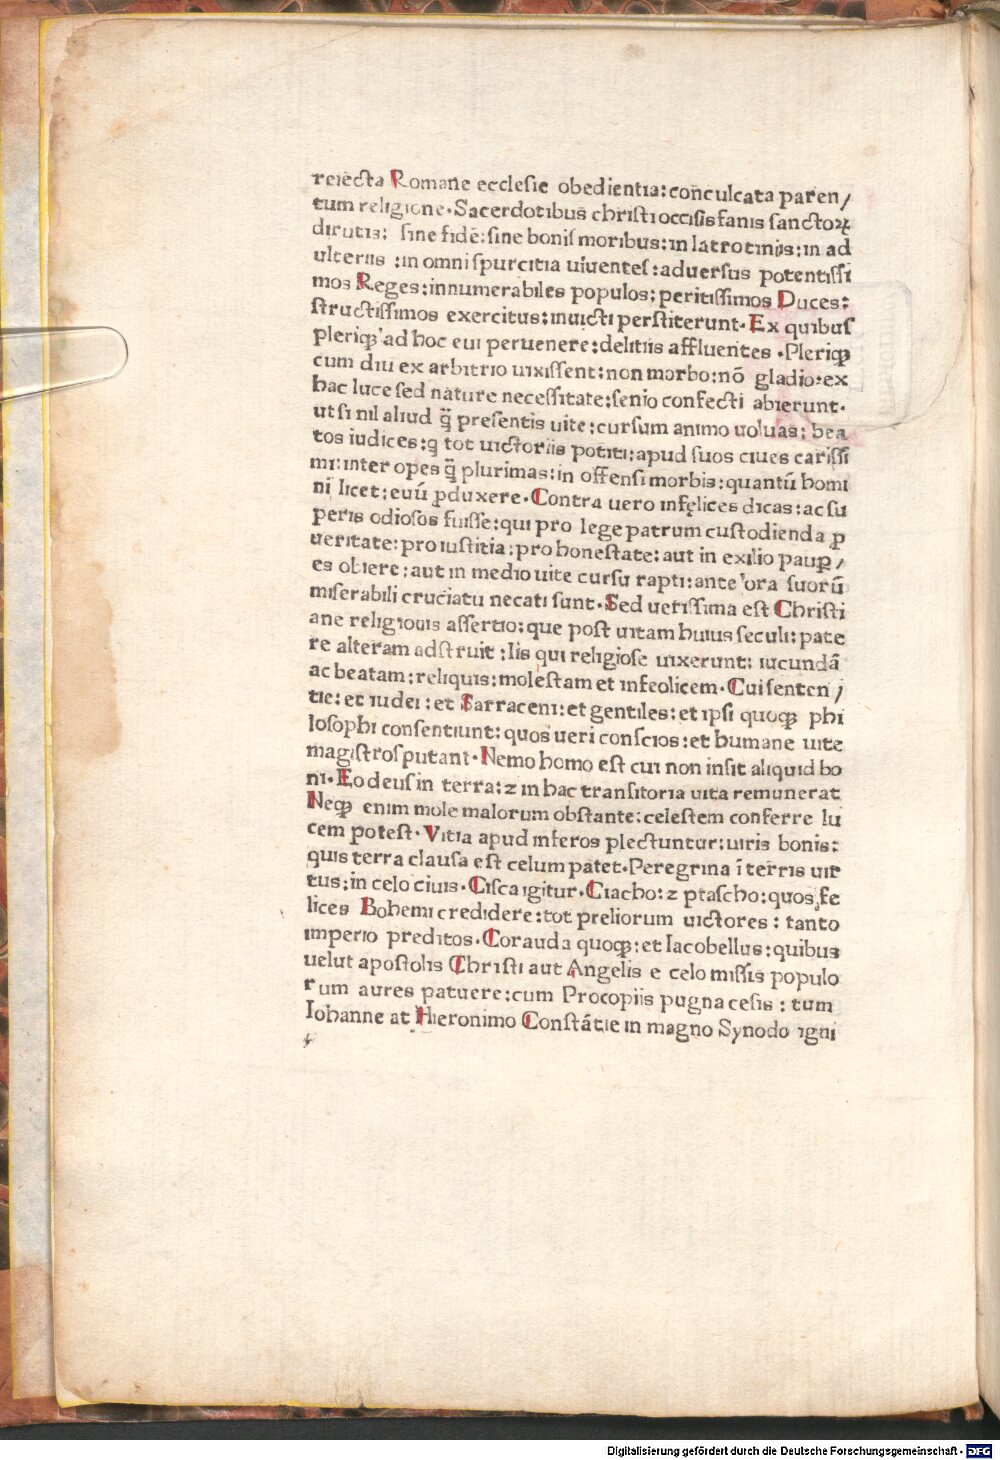 reiecta Romane ecclesie obedientia:conculcata paren/
tum religione·Sacerdotibus christi occisis fanis sanctoꝝ
dirutis: sine fide:sine bonis moribus:in latrotinijs:in ad
ulteriis :in omni spurcitia uiuentes:aduersus potentissi
mos Reges:innumerabiles populos:peritissimos Duces:
structissimos exercitus:inuicti perstiterunt·Ex quibus
pleriqꝫ ad hoc eui peruenere:delitiis affluentes ·Pleriqꝫ
cum diu ex arbitrio uixissent:non morbo:nõ gladio:ex
hac luce sed nature necessitate:senio confecti abierunt·
ut si nil aliud q̃ presentis uite:cursum animo uoluas: bea
tos iudices:q tot uictoriis potiti:apud suos ciues carissi
mi:inter opes q̃ plurimas:in offensi morbis:quantũ homi
ni licet:euũ ꝓduxere·Contra uero infęlices dicas:ac su
peris odiosos fuisse:qui pro lege patrum custodienda ꝓ
ueritate:pro iustitia:pro honestate:aut in exilio pauꝑ/
es obiere:aut in medio uite cursu rapti:ante ora suorũ
miserabili cruciatu necati sunt·Sed uerissima est Christi
ane religiouis assertio:que post uitam huius seculi:pate
re alteram adstruit :Iis qui religiose uixerunt: iucundã
ac beatam:reliquis:molestam et infeolicem·Cui senten/
tie:et iudei:et Sarraceni:et gentiles:et ipsi quoqꝫ phi
losophi consentiunt:quos ueri conscios:et humane uite
magistros putant·Nemo homo est cui non insit aliquid bo
ni·Eo deus in terra:ꝛ in hac transitoria uita remunerat
Neqꝫ enim mole malorum obstante:celestem conferre lu
cem potest·Vitia apud inferos plectuntur:uiris bonis:
quis terra clausa est celum patet·Peregrina ĩ terris uir
tus:in celo ciuis·Cisca igitur·Ciacho:ꝛ ptascho:quos fe
lices Bohemi credidere:tot preliorum uictores: tanto
imperio preditos·Corauda quoqꝫ:et Iacobellus:quibus
uelut apostolis Christi aut Angelis e celo missis populo
rum aures patuere:cum Procopiis pugnacesis: tum
Iohanne at Hieronimo Constãtie in magno Synodo igni
Digitalisierung gefördert durch die Deutsche Forschungsgemeinschaft - DFG